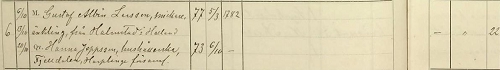 6/10 M. Gustaf Albin Larsson, snickare, 77 5/3 1782
6. 9/10 änkling, från Halmstad i Halland
29/10 Q. Hanna Jeppsson, hushållerska, 73 6/10 — 22
Fjelldalen, Harplinge församl.